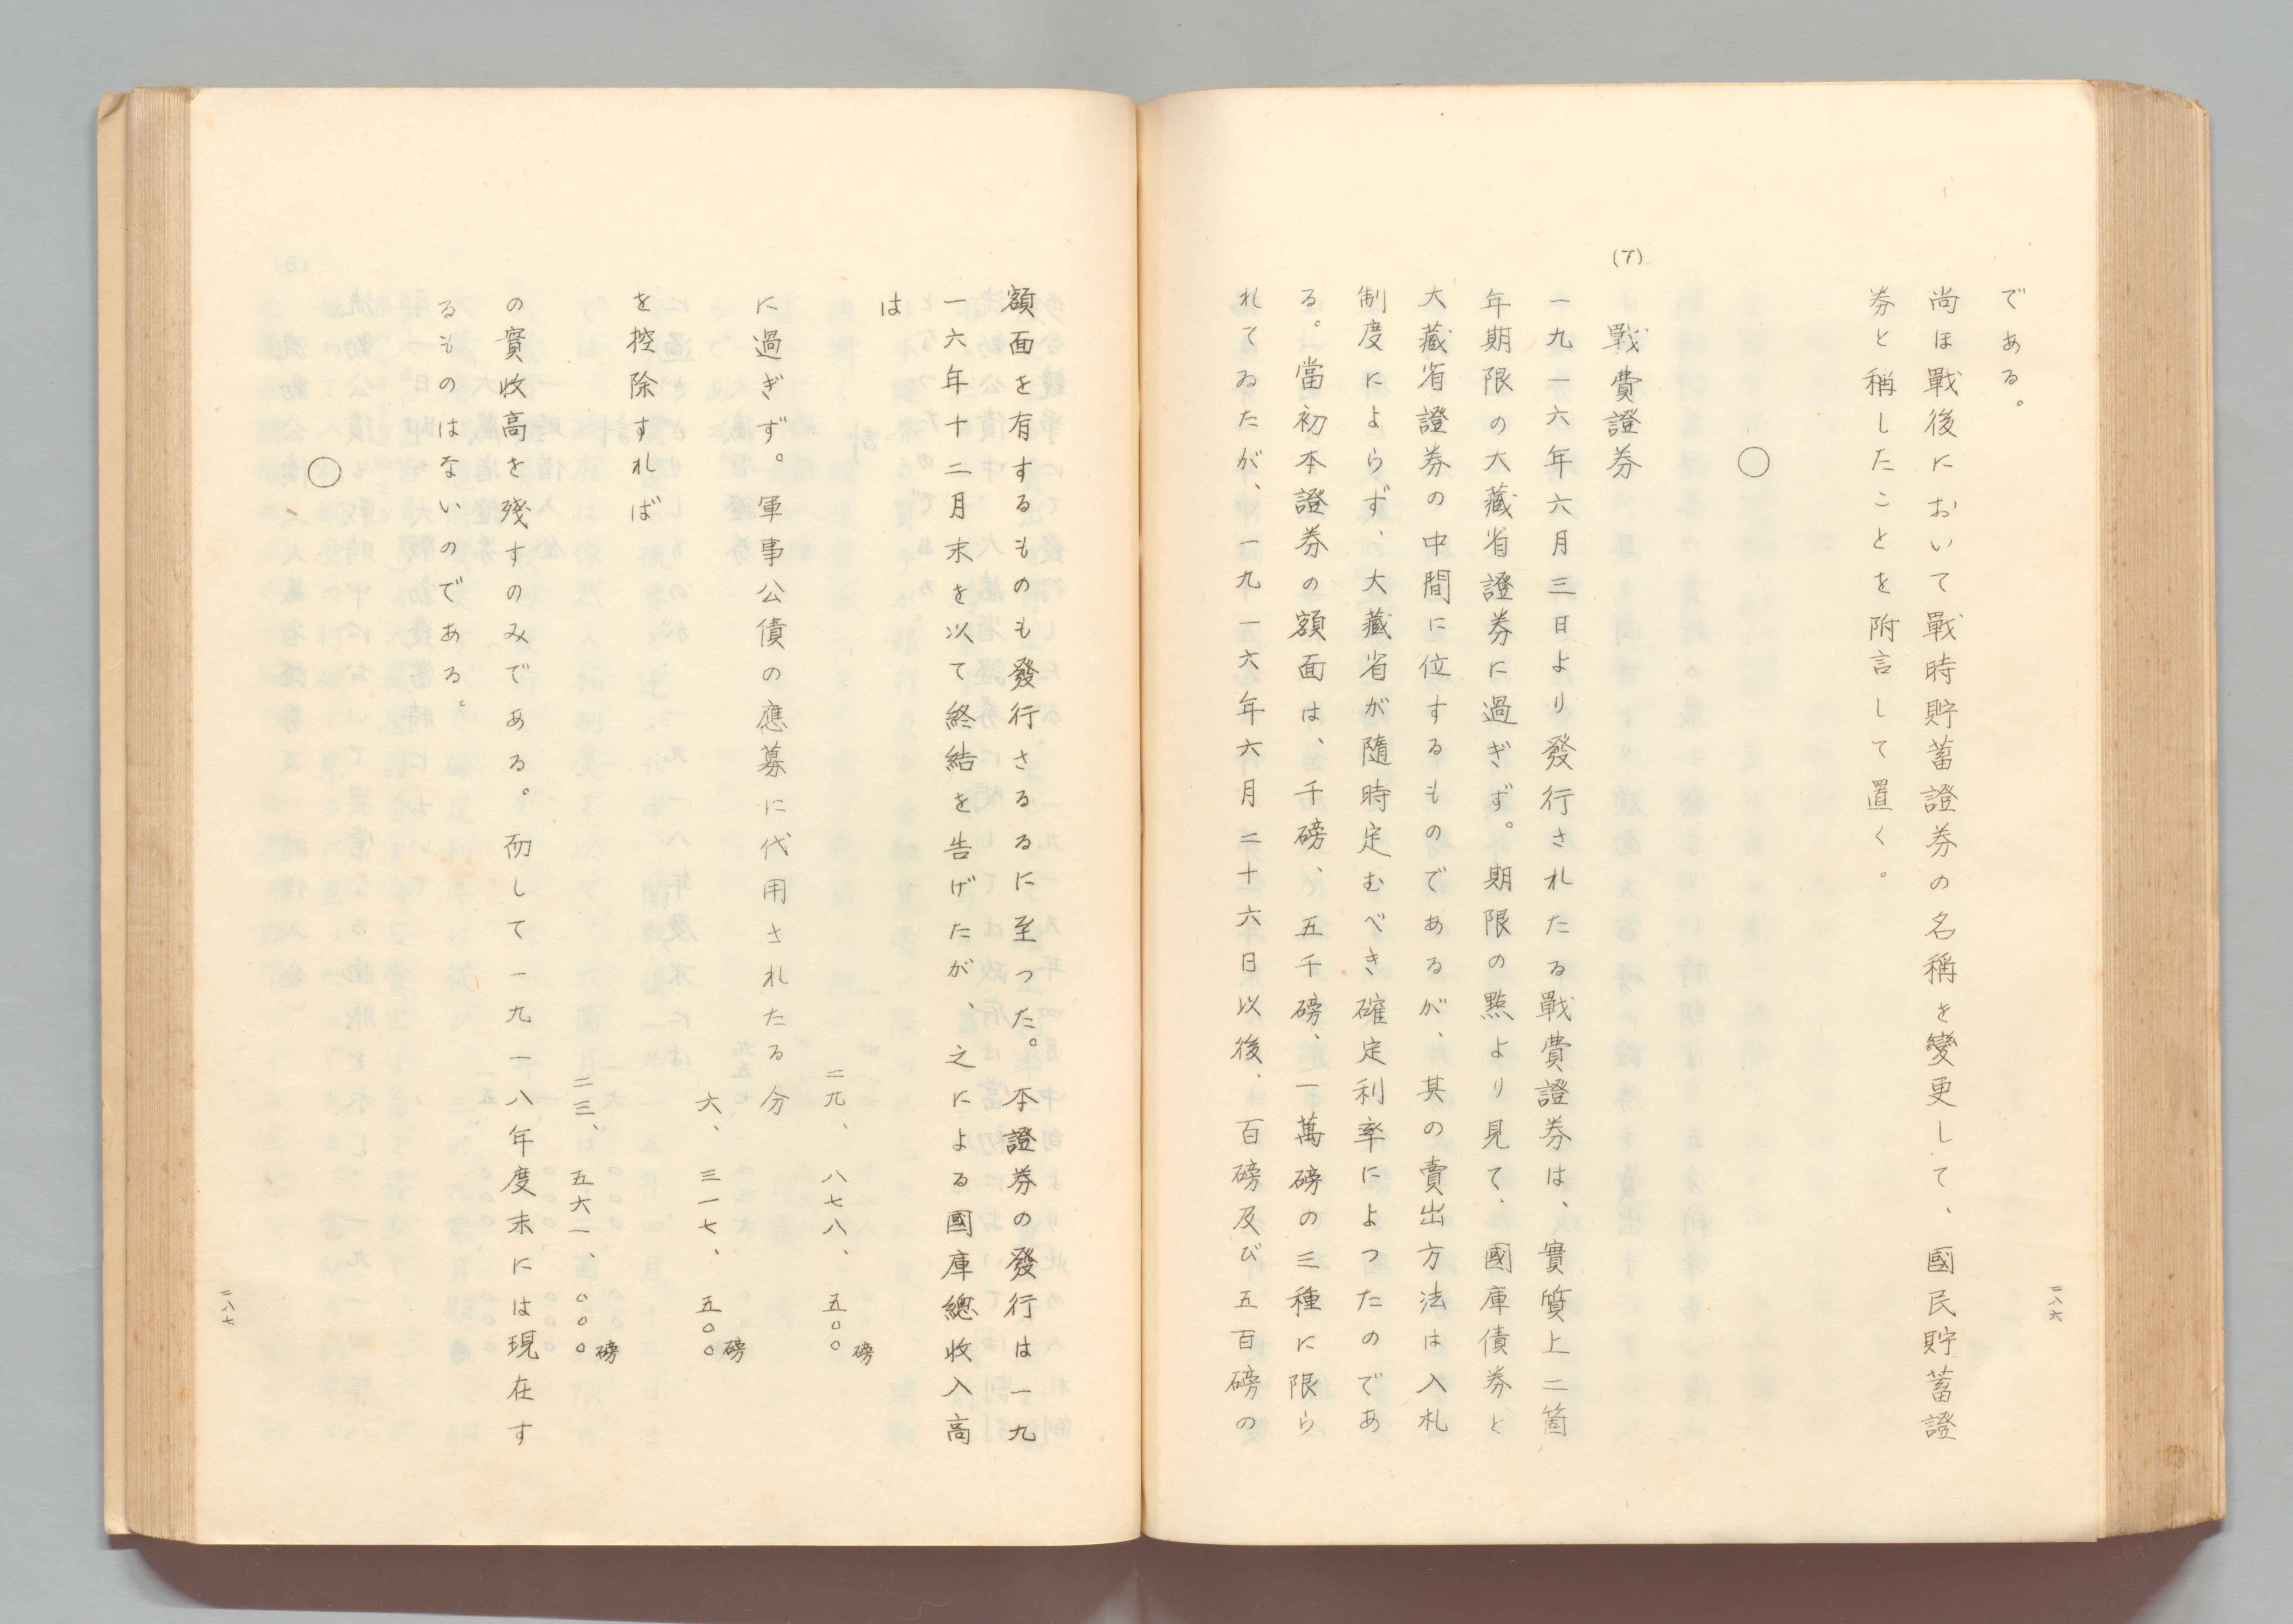 二八六
である。
尚ほ戰後において戰時貯蓄證券の名稱を變更して、國民貯蓄證
券と稱したことを附言して置く。
○
(7)
戰費證券
一九一六年六月三日より發行されたる戰費證券は、實質上二箇
年期限の大藏省證券に過ぎず。期限の點より見て、國庫債券と
大藏省證券の中間に位するものであるが、其の賣出方法は入札
制度によらず、大藏省が隨時定むべき確定利率によつたのであ
る。當初本證券の額面は、千磅、五千磅、一萬磅の三種に限ら
れてゐたが、一九一六年六月二十六日以後、百磅及び五百磅の
額面を有するものも發行さるるに至つた。本證券の發行は一九
一六年十二月末を以て終結を告げたが、之による國庫總收入高
は
二九、八七八、五〇〇磅
に過ぎず。軍事公債の應募に代用されたる分
六、三一七、五〇〇磅
を控除すれば
二三、五六一、〇〇〇磅
の實收高を殘すのみである。而して一九一八年度末には現在す
るものはないのである。
○
二八七